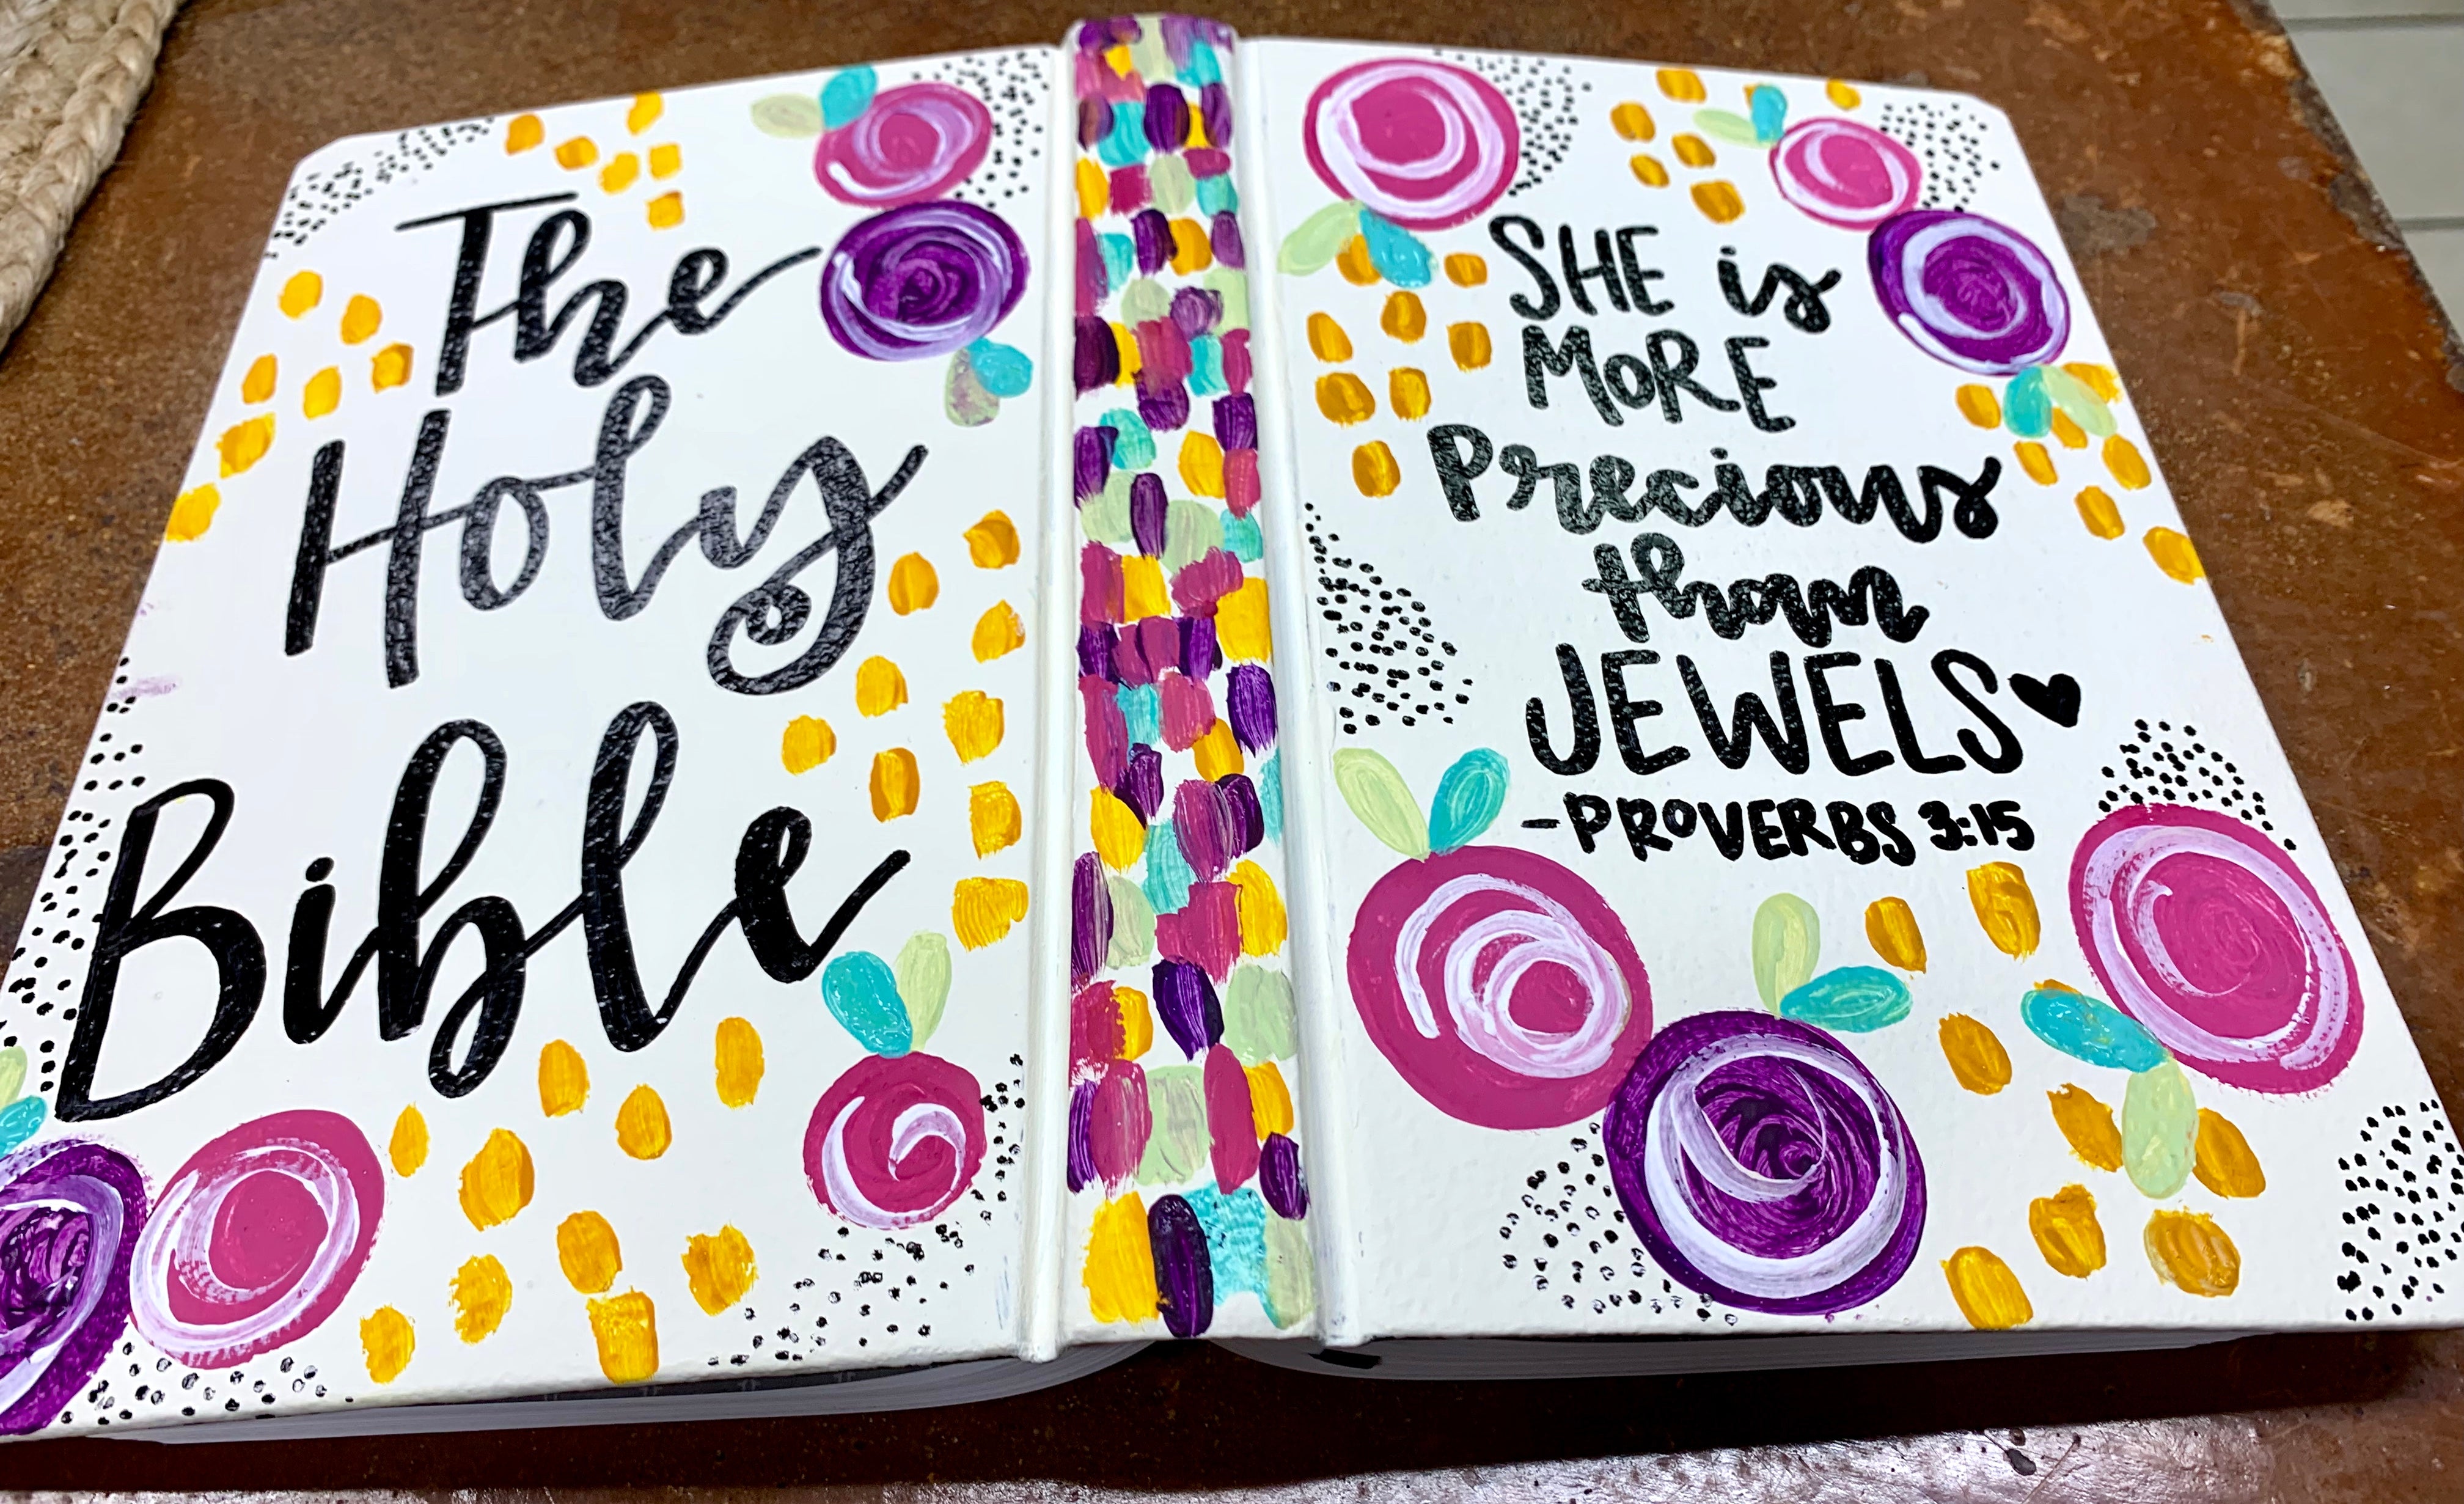 The
Holy
Bible
SHE is
MORE
Precious
than
JEWELS
-PROVERBS 3:15